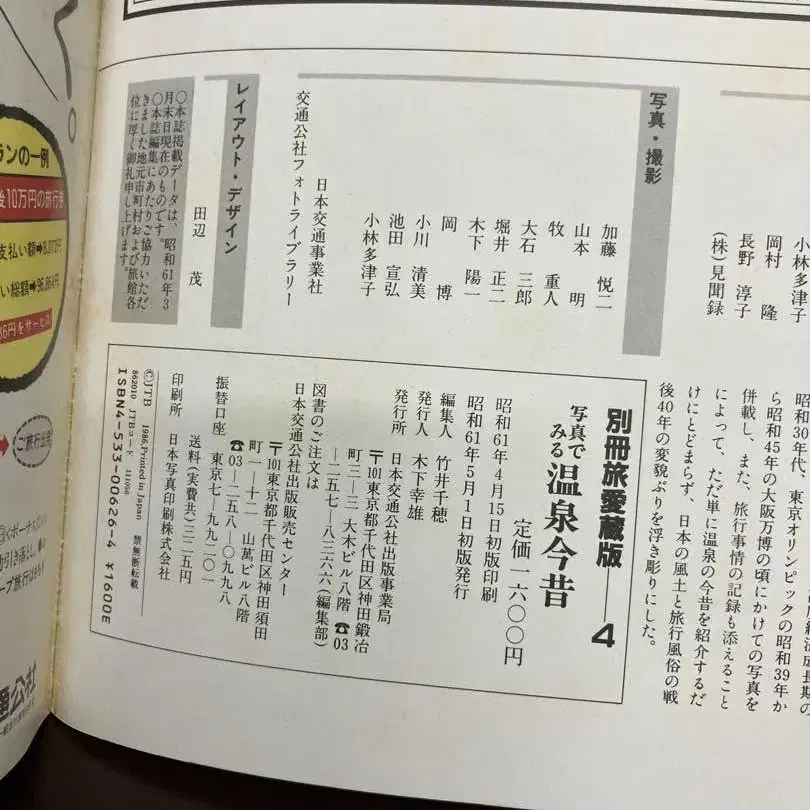 小林多津子
岡村 隆
長野 淳子
(株)見聞録
写真・撮影
加藤 悦二
山本 明
牧 重人
大石 三郎
堀井 正二
木下 陽一
岡 博
小川 清美
池田 宣弘
小林多津子
日本交通事業社
交通公社フォトライブラリー
レイアウト・デザイン
田辺 茂
○本誌掲載データは、昭和61年3
月末日現在のものです。
○本誌編集にあたりご協力いただ
きました地元市町村および旅館各
位に厚く御礼申し上げます。
昭和30年代、東京オリンピックの昭和39年か
ら昭和45年の大阪万博の頃にかけての写真を
併載し、また、旅行事情の記録も添えること
によって、ただ単に温泉の今昔を紹介するだ
けにとどまらず、日本の風土と旅行風俗の戦
後40年の変貌ぶりを浮き彫りにした。
別冊旅愛蔵版——4
写真で
みる温泉今昔
定価一六〇〇円
昭和61年4月15日初版印刷
昭和61年5月1日初版発行
編集人 竹井千穂
発行人 木下幸雄
発行所 日本交通公社出版事業局
〒101東京都千代田区神田鍛冶
町三-三 大木ビル八階 ☎03
-二五七-八三六六(編集部)
図書のご注文は
日本交通公社出版販売センター
〒101東京都千代田区神田須田
町一-十二 山萬ビル八階
☎03-二五八-〇九九八
振替口座 東京七-九九二〇一
送料(実費共)三二五円
印刷所 日本写真印刷株式会社
©JTB 1986.Printed in Japan 禁無断転載
862010 JTBコード 411050
ISBN4-533-00626-4 ¥1600E
ランの一例
後10万円の旅行券
ご旅行出発